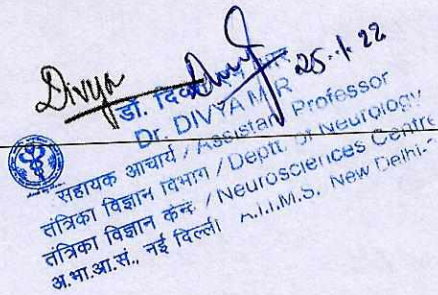 Divya
25.1.22
डॉ.
Dr. DIVYA M R
सहायक आचार्य / Assistant Professor
तंत्रिका विज्ञान विभाग / Deptt. of Neurology
तंत्रिका विज्ञान केन्द्र / Neurosciences Centre
अ.भा.आ.सं., नई दिल्ली A.I.I.M.S. New Delhi-